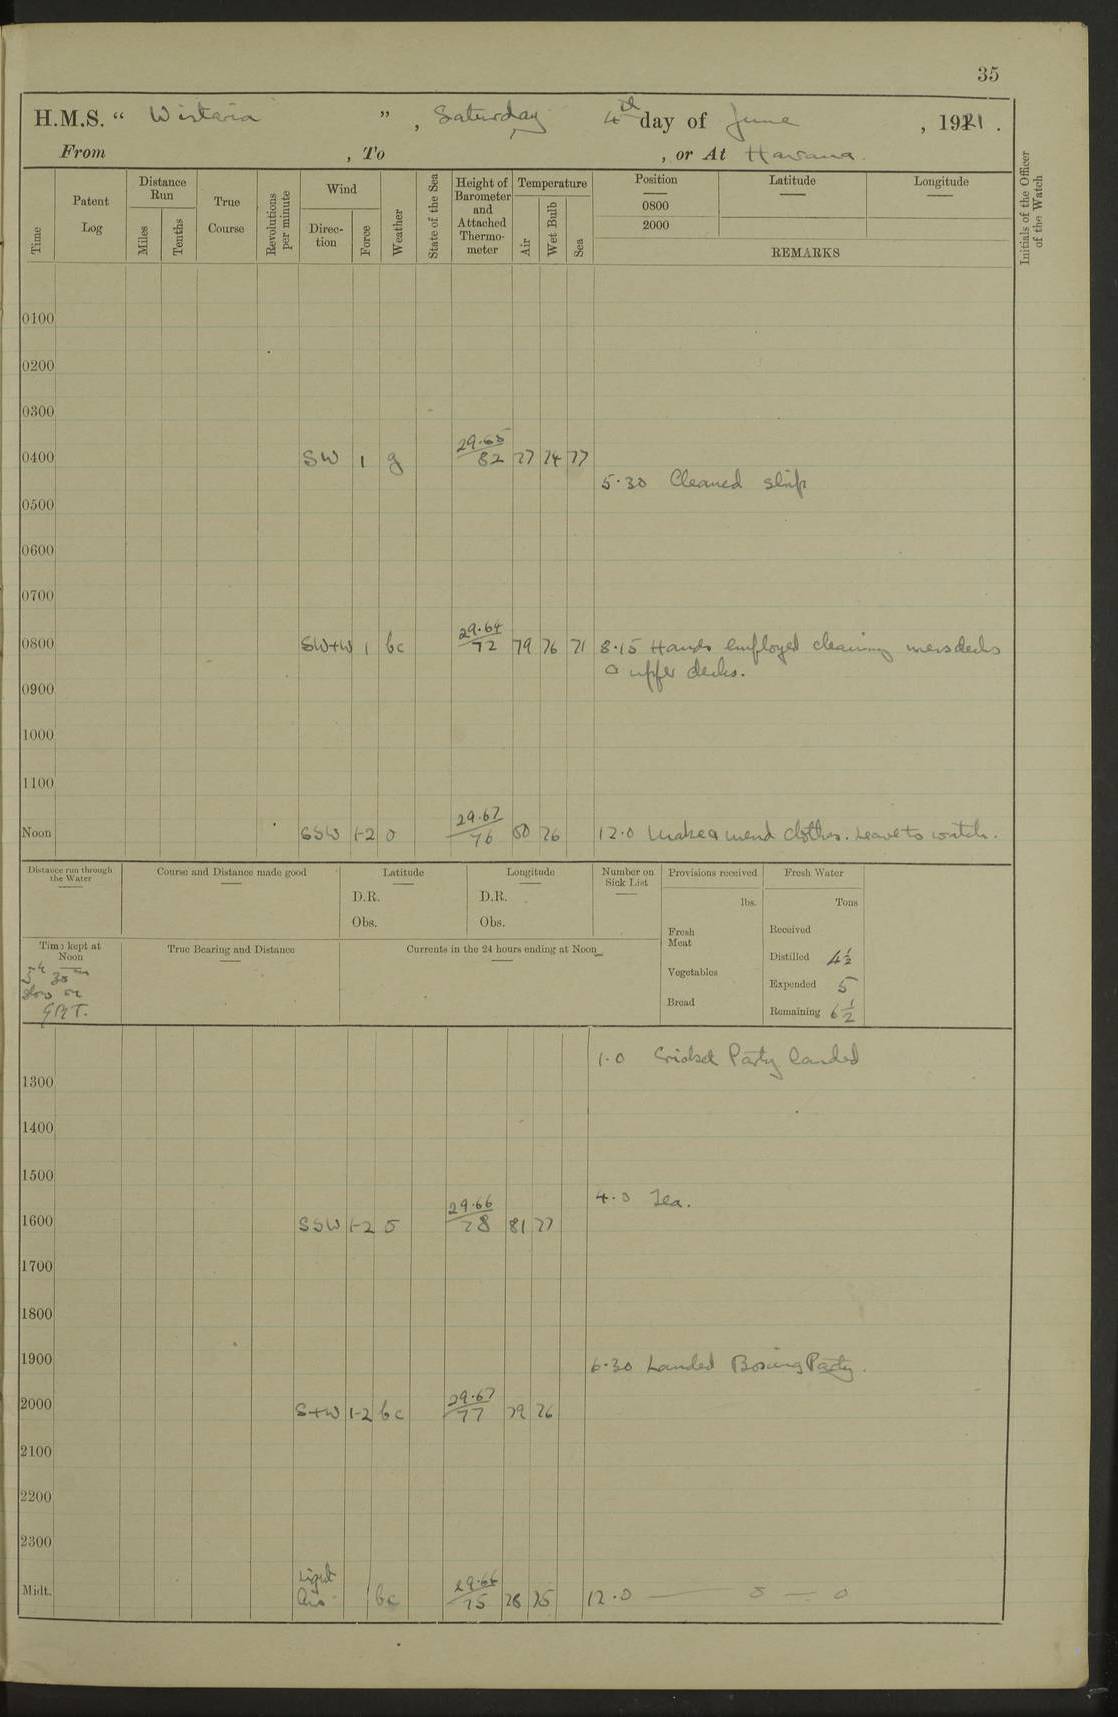 35
H.M.S. " Wistaria " , Saturday 4th day of June , 1921 .
From , To , or At Havana.
Time
Patent Log
Distance Run
Miles
Tenths
True Course
Revolutions per minute
Wind
Direc-tion
Force
Weather
State of the Sea
Height of Barometer and Attached Thermo-meter
Temperature
Air
Wet Bulb
Sea
Position
0800
2000
Latitude
Longitude
REMARKS
Initials of the Officer of the Watch
0100
0200
0300
0400 SW 1 g 29.65/82 77 74 77
5.30 Cleaned ship
0500
0600
0700
0800 SW+W 1 bc 29.64/72 79 76 71 8.15 Hands employed cleaning messdecks
& upper decks.
0900
1000
1100
Noon SSW 1-2 o 29.67/76 80 76 12.0 Make & mend clothes. Leave to watch.
Distance run through the Water
Course and Distance made good
Latitude
D.R.
Obs.
Longitude
D.R.
Obs.
Number on Sick List
Provisions received
lbs.
Fresh Meat
Vegetables
Bread
Fresh Water
Tons
Received
Distilled 4½
Expended 5
Remaining 6½
Time kept at Noon
5h 30m
slow on
GMT.
True Bearing and Distance
Currents in the 24 hours ending at Noon
1.0 Cricket Party landed
1300
1400
1500
4.0 Tea.
1600 SSW 1-2 o 29.66/78 81 77
1700
1800
1900 6.30 Landed Boxing Party.
2000 S+W 1-2 bc 29.67/77 79 76
2100
2200
2300
Midt. Light Airs bc 29.66/75 78 75 12.0